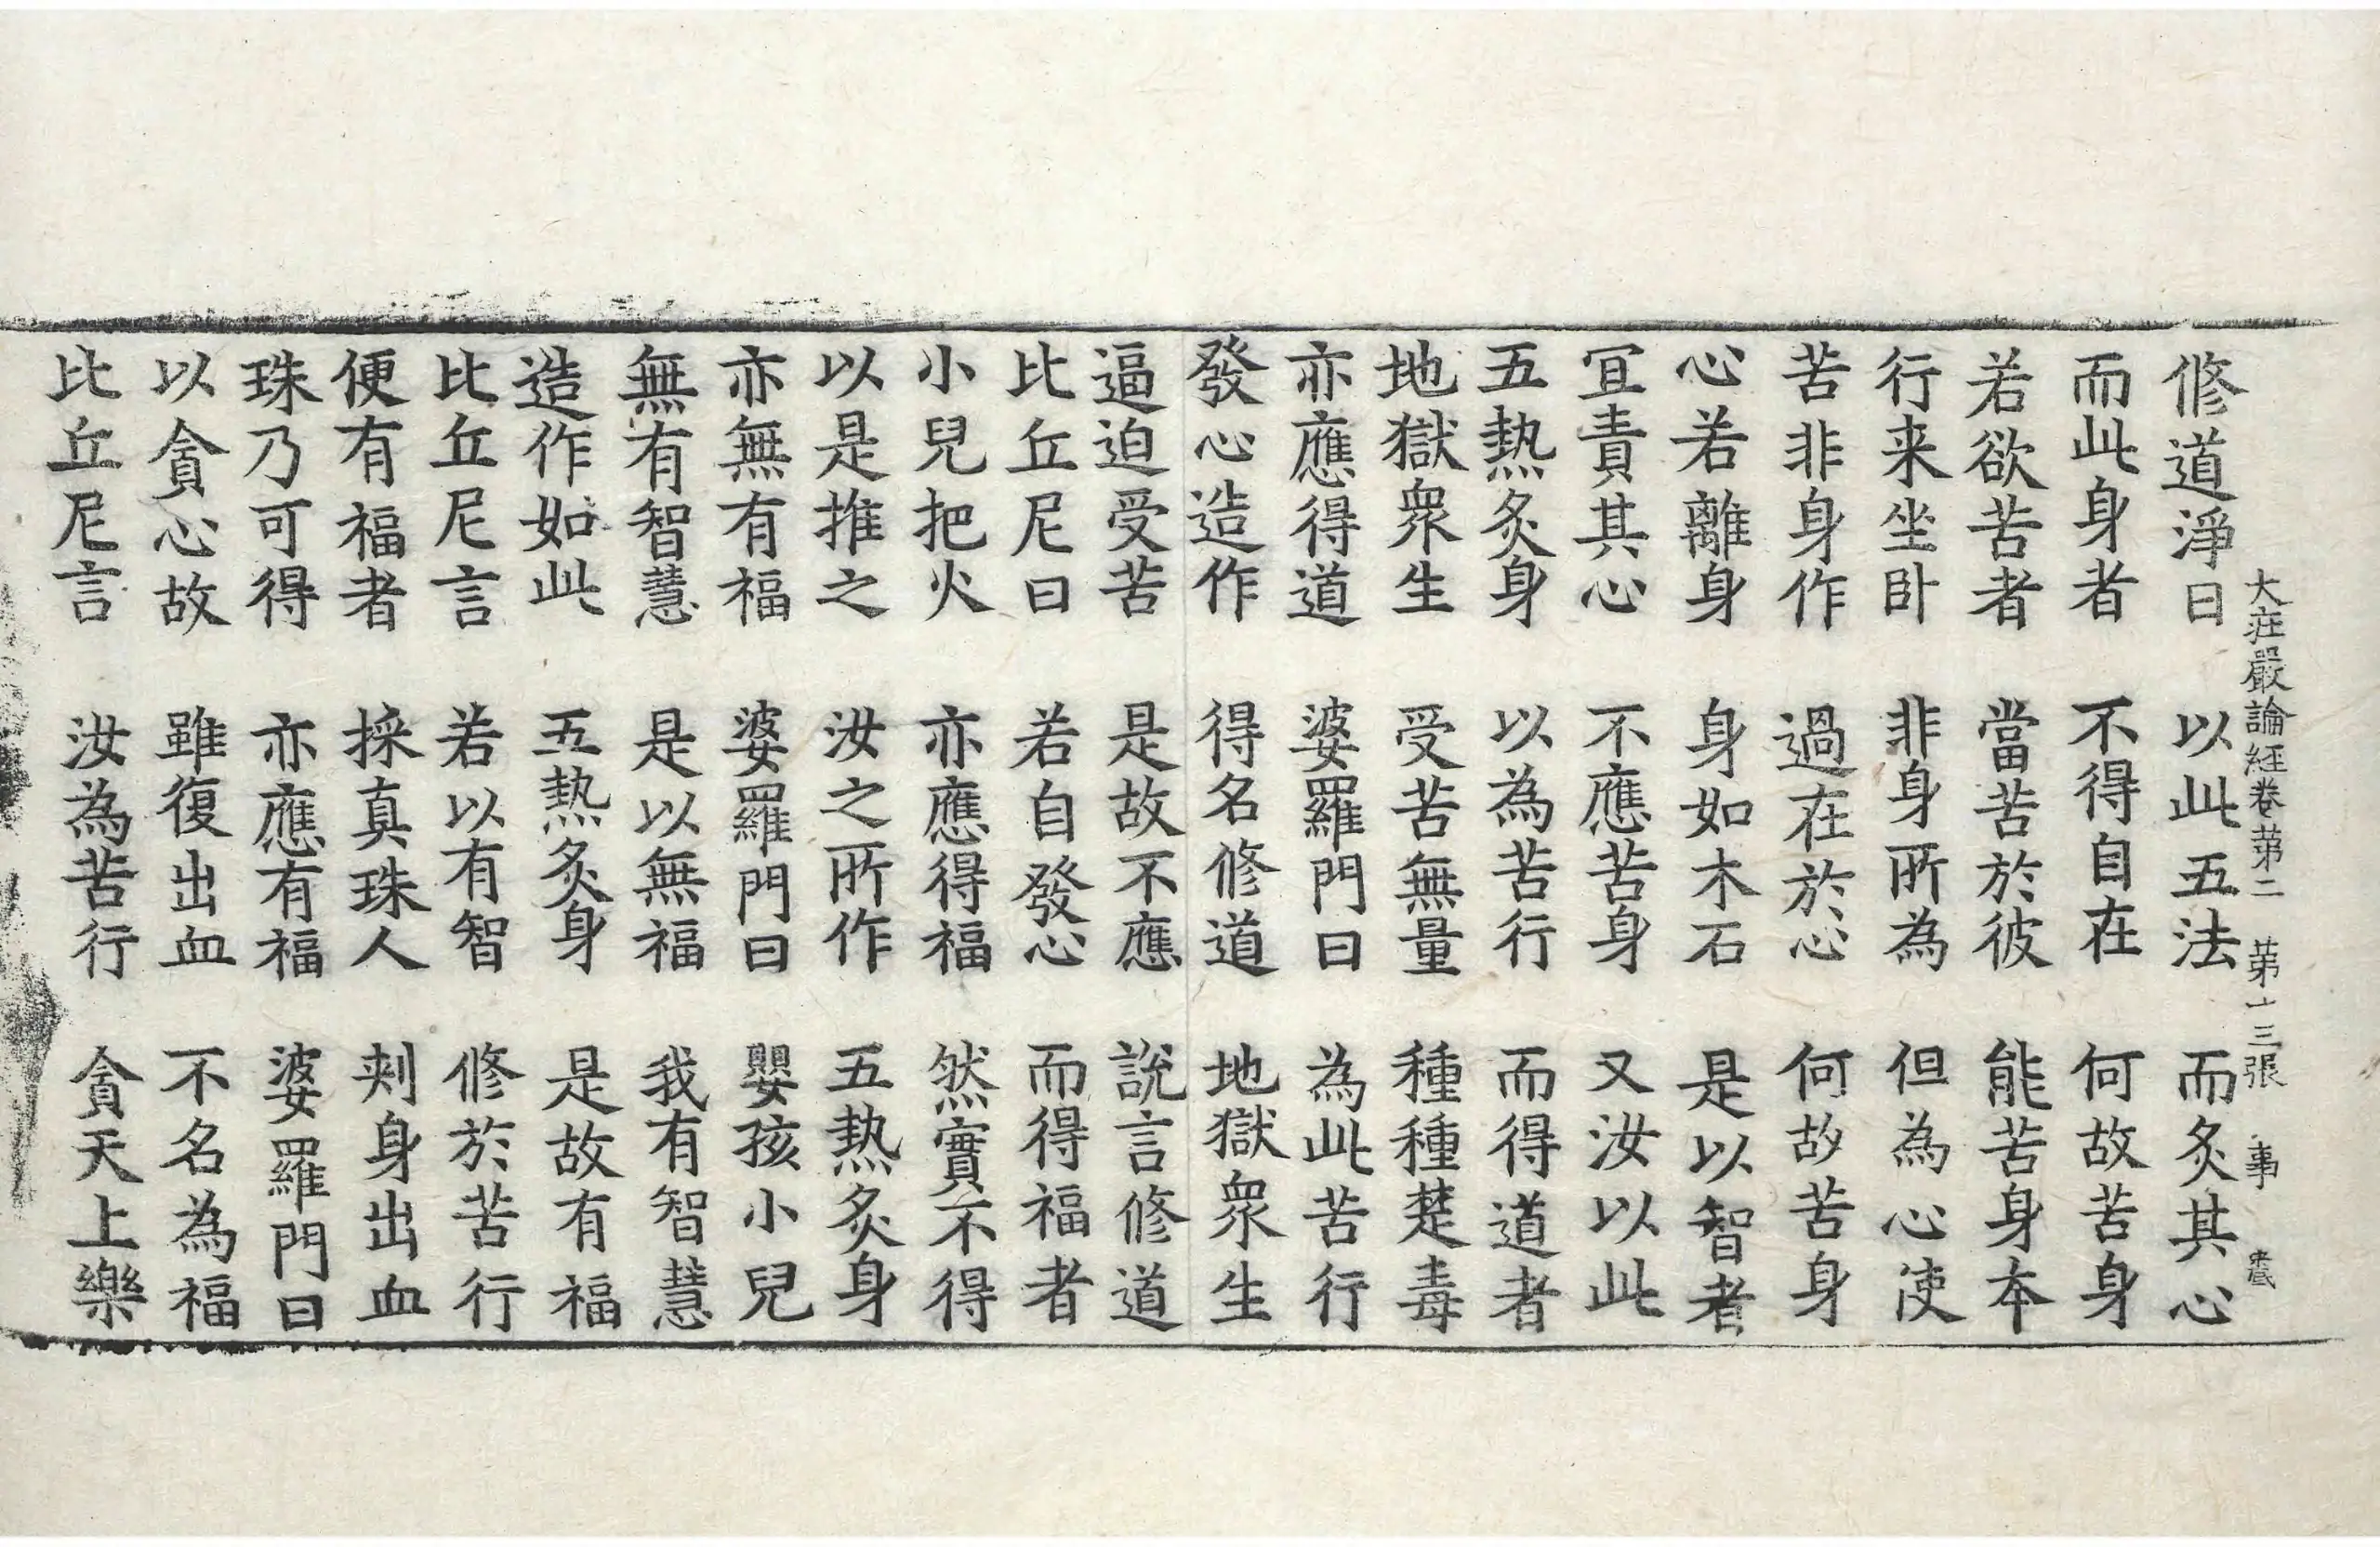 大莊嚴論經卷第二 第十三張 事 藏
修道淨日 以此五法 而炙其心
而此身者 不得自在 何故苦身
若欲苦者 當苦於彼 能苦身本
行来坐卧 非身所為 但為心使
苦非身作 過在於心 何故苦身
心若離身 身如木石 是以智者
冝責其心 不應苦身 又汝以此
五熱炙身 以為苦行 而得道者
地獄衆生 受苦無量 種種楚毒
亦應得道 婆羅門曰 為此苦行
發心造作 得名修道 地獄衆生
逼迫受苦 是故不應 說言修道
比丘尼曰 若自發心 而得福者
小兒把火 亦應得福 然實不得
以是推之 汝之所作 五熱炙身
亦無有福 婆羅門曰 嬰孩小兒
無有智慧 是以無福 我有智慧
造作如此 五熱炙身 是故有福
比丘尼言 若以有智 修於苦行
便有福者 採真珠人 刾身出血
珠乃可得 亦應有福 婆羅門曰
以貪心故 雖復出血 不名為福
比丘尼言 汝為苦行 貪天上樂